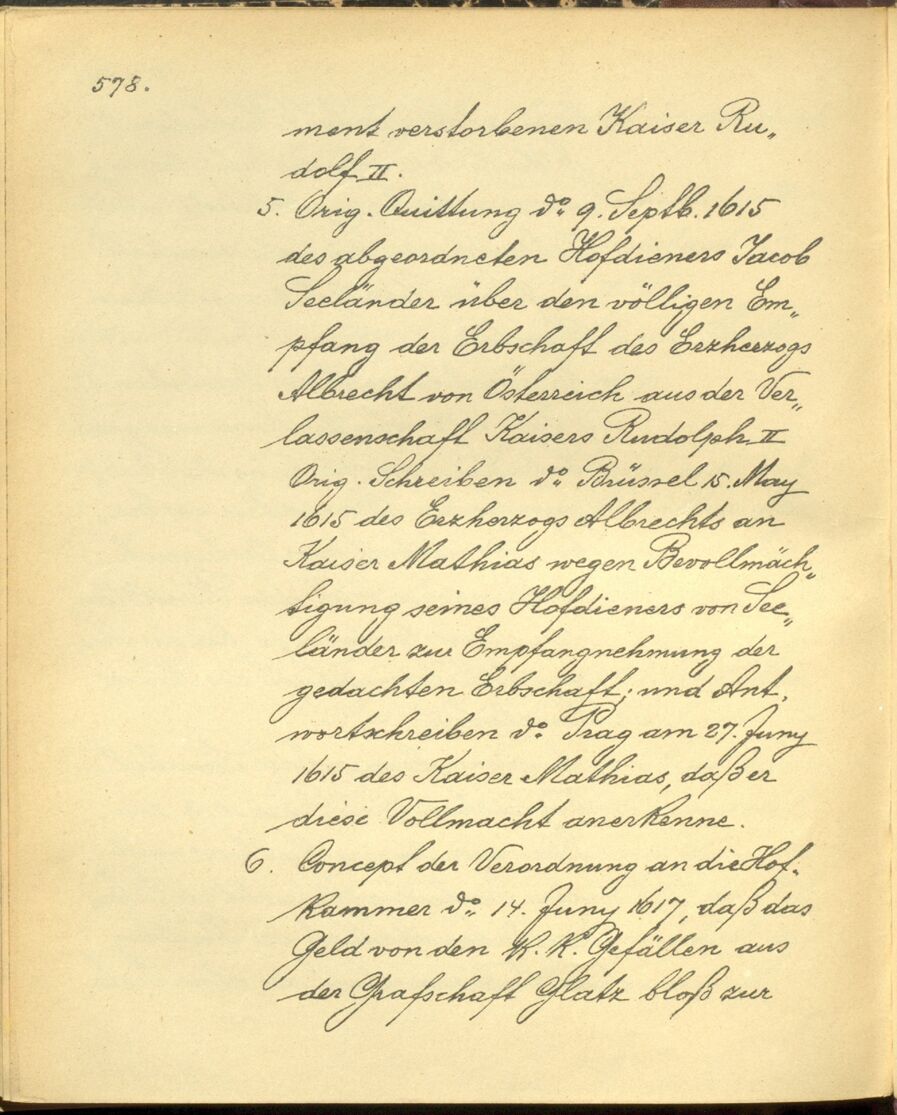 578.
ment verstorbenen Kaiser Ru„
dolf II.
5. Orig. Quittung do: 9. Septb. 1615
des abgeordneten Hofdieners Jacob
Seeländer über den völligen Em„
pfang der Erbschaft des Erzherzogs
Albrecht von Österreich aus der Ver„
lassenschaft Kaisers Rudolph II
Orig. Schreiben do: Brüssel 15. May
1615 des Erzherzogs Albrechts an
Kaiser Mathias wegen Bevollmäch„
tigung seines Hofdieners von See„
länder zur Empfangnehmung der
gedachten Erbschaft; und Ant„
wortschreiben do: Prag am 27. Juny
1615 des Kaiser Mathias, daß er
diese Vollmacht anerkenne.
6. Concept der Verordnung an die Hof„
kammer do: 14. Juny 1617, daß das
Geld von den K. K. Gefällen aus
der Grafschaft Glatz bloß zur